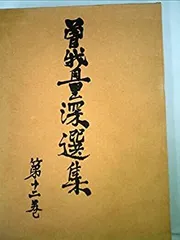 曽我量深選集
第十二巻